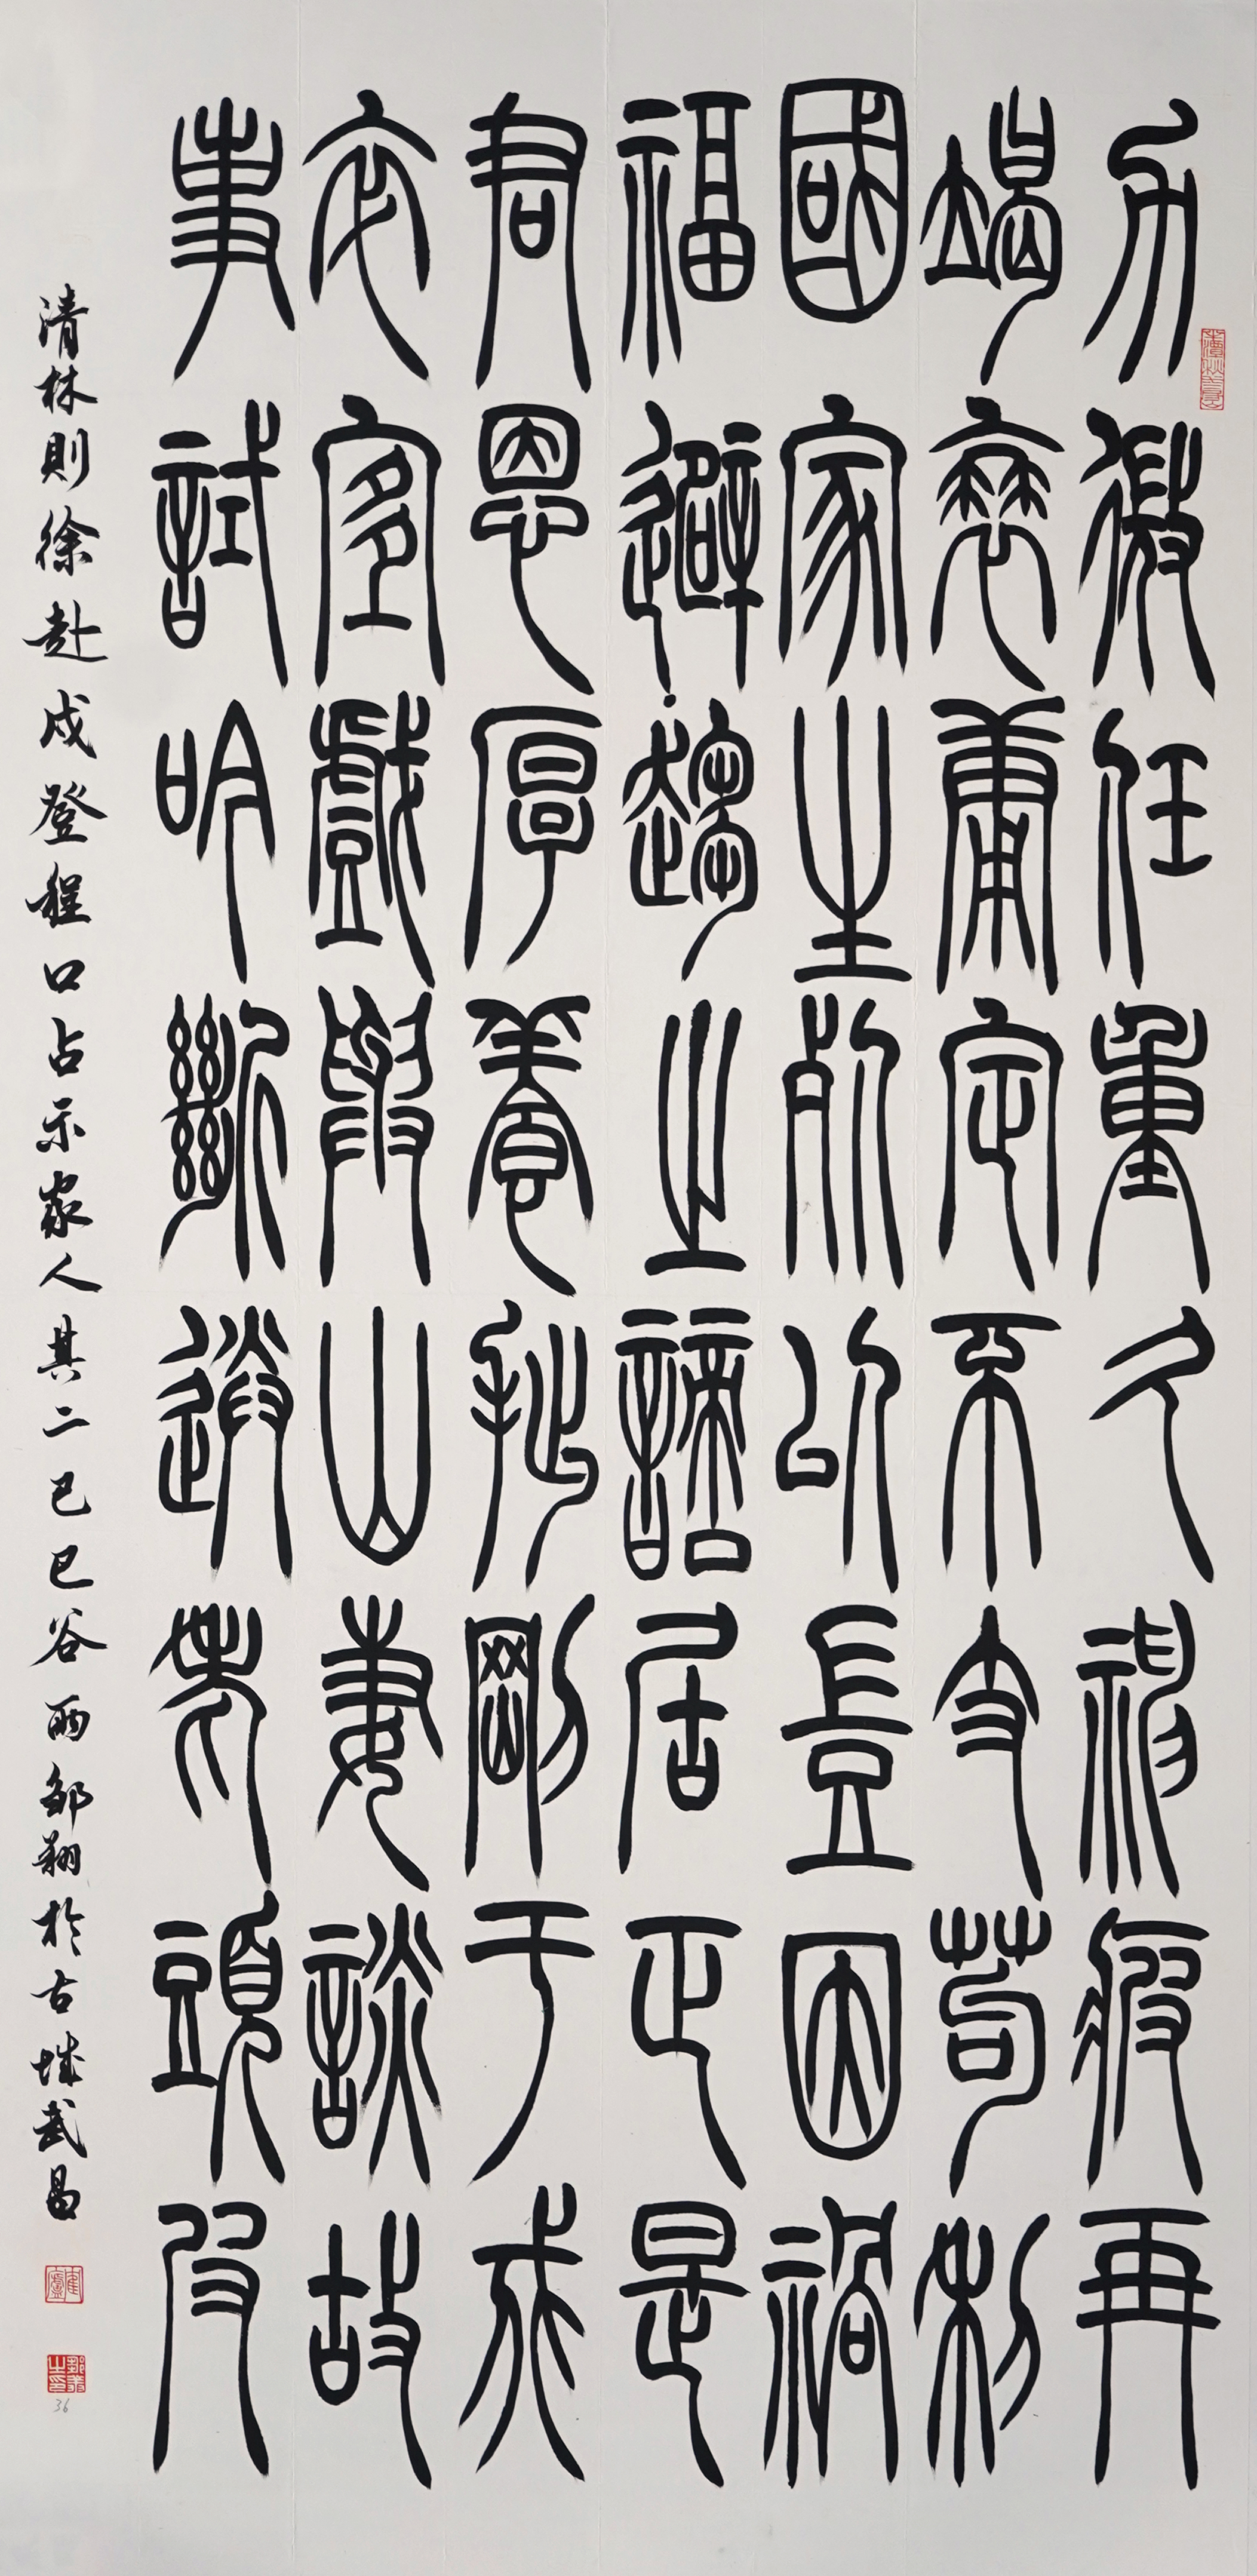 力微任重久神疲再
竭衰庸定不支苟利
國家生死以豈因禍
福避趨之謫居正是
君恩厚養拙剛于戍
卒宜戲與山妻談故
事試吟斷送老頭皮
清林則徐赴戍登程口占示家人其二己巳谷雨鄒翔於古城武昌
36